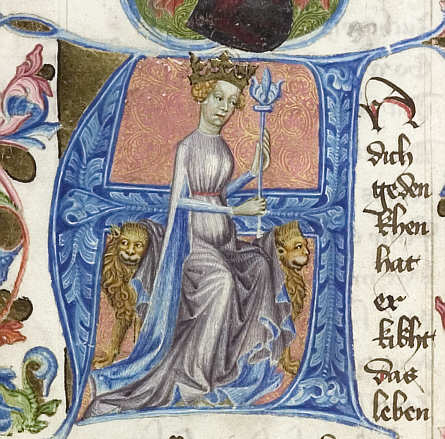 A
dich
geden
khen
hat
er
gibht
das
leben